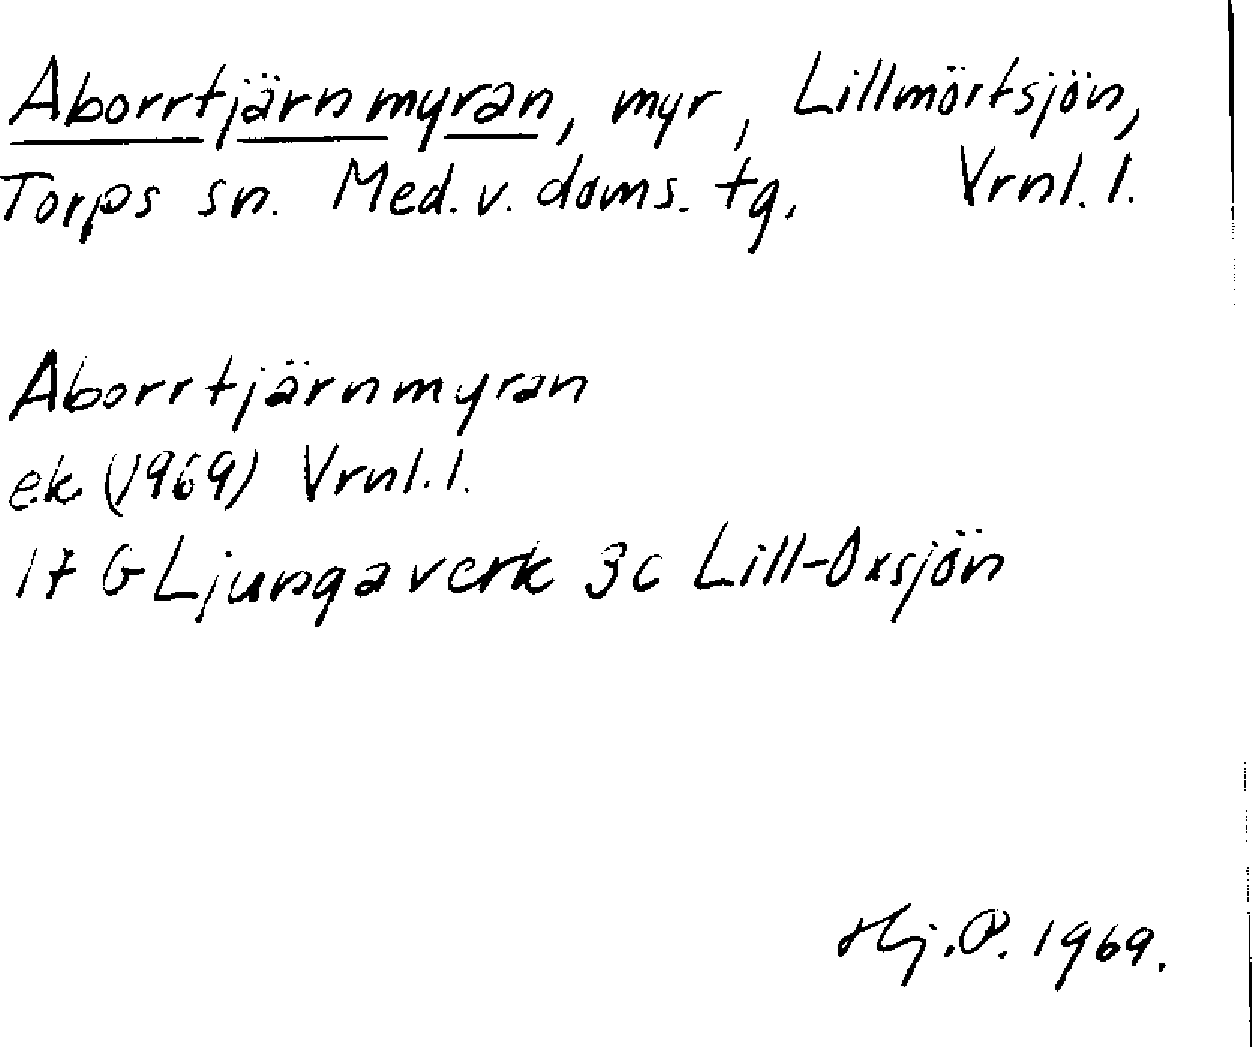 Aborrtjärnmyran, myr, Lillmörtsjön,
Torps sn. Med. v. doms. tg. Vrnl. l.
Aborrtjärnmyran
ek (1969) Vrnl. l.
17 G Ljungaverk 3c Lill-Oxsjön
Hj. P. 1969.